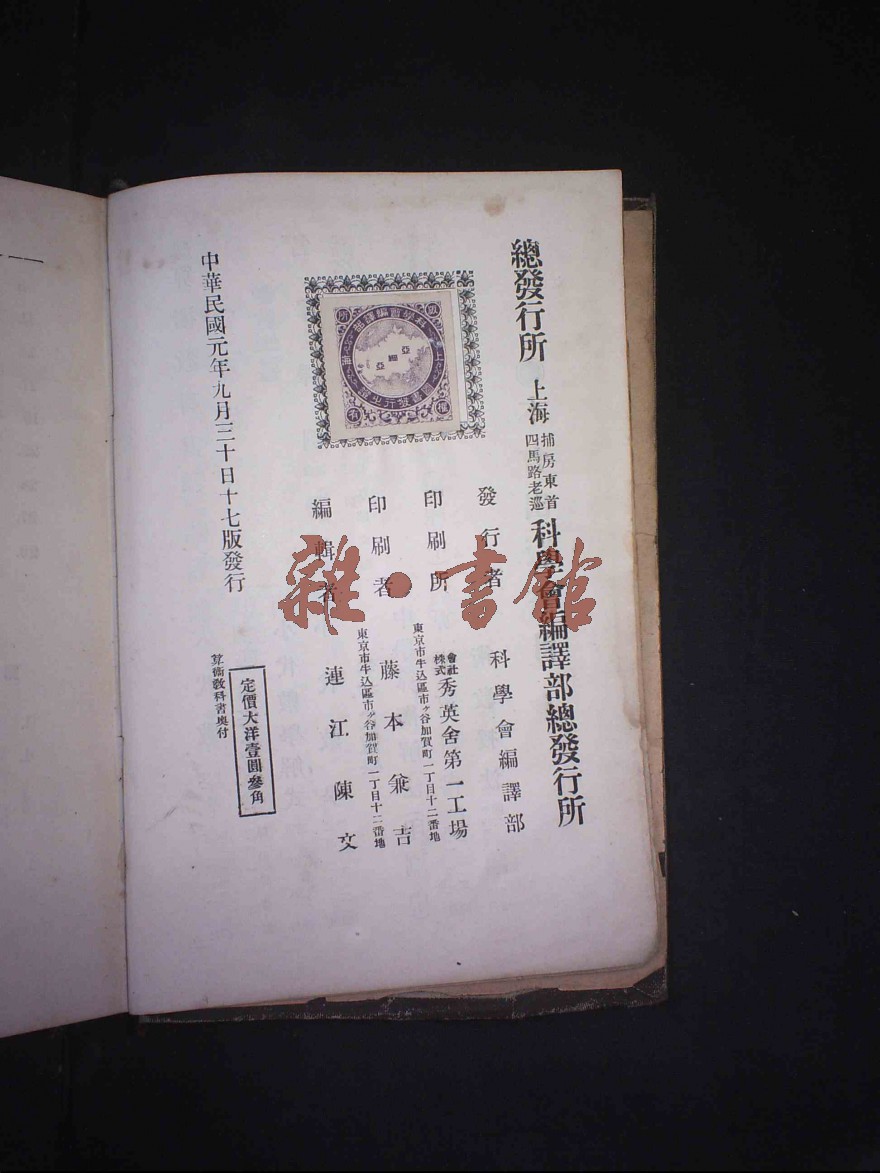 總發行所 上海 四馬路老巡捕房東首 科學會編譯部總發行所
發行者 科學會編譯部
東京市牛込區市ヶ谷加賀町一丁目十二番地
印刷所 株式會社秀英舍第一工場
東京市牛込區市ヶ谷加賀町一丁目十二番地
印刷者 藤本兼吉
編輯者 連江陳文
定價大洋壹圓參角
算術教科書奧付
中華民國元年九月三十日十七版發行
雜·書館